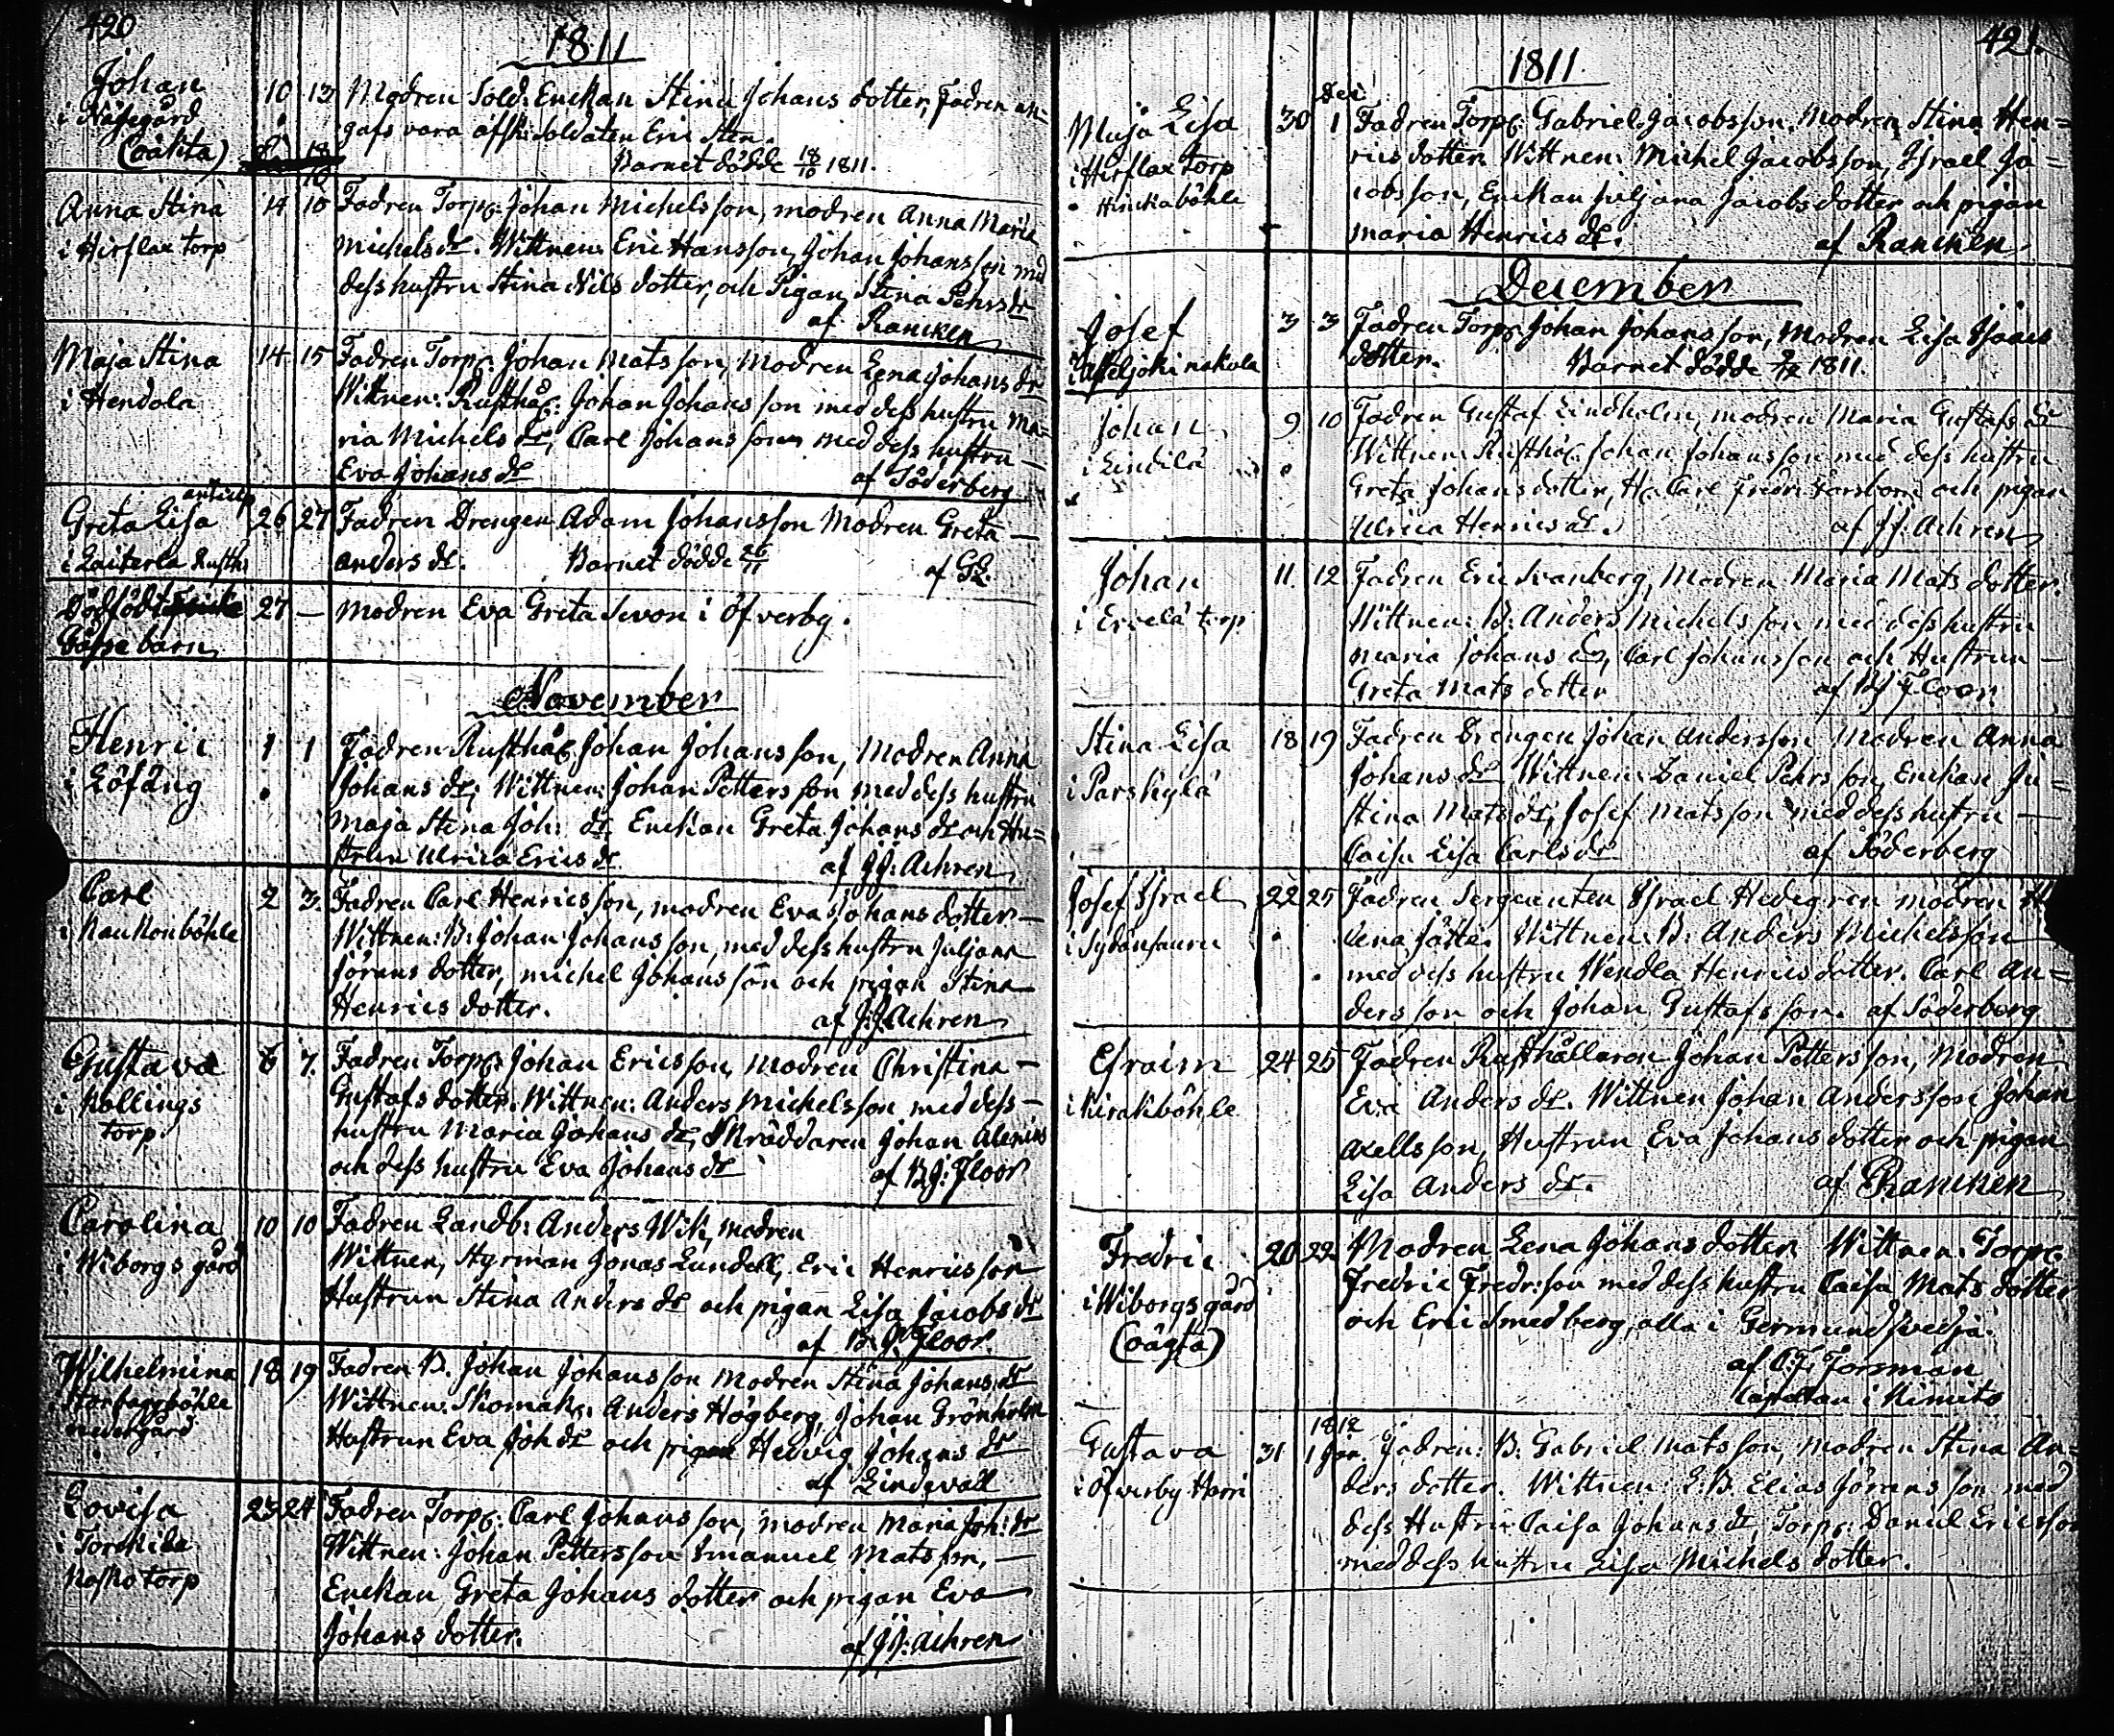 420
1811
Johan 10 13 Modren Sold: Enckan Stina Johans dotter, Fadren an=
i Näsegård gafs vara afsk: Soldaten Eric Sten
(oäkta) Barnet dödde 18/10 1811.
Anna Stina 14 15 Fadren Torp: Johan Michelsson, modren Anna Maria
i Hirslax torp Michels dr. Wittnen: Eric Hansson, Johan Johansson med
dess hustru Stina Nils dotter, och Pigan Stina Pehrs dr
af Rancken
Maja Stina 14 15 Fadren Torp: Johan Matsson, Modren Lena Johans dr
i Hendola Wittnen: Rusthåll: Johan Johansson med dess hustru Ma=
ria Michels dr, Carl Johansson med dess hustru —
Eva Johans dr af Söderberg
Greta Lisa 26 27 Fadren Drengen Adam Johansson Modren Greta —
i Laiterla Rusth: Anders dr. Barnet dödde 26/11 af GL.
Dödfödt 27 — Modren Eva Greta Sevon i Öfverby.
Gosse barn
November
Henric 1 1 Fadren Rusthåll: Johan Johansson, Modren Anna
i Löfäng Johans dr; Wittnen: Johan Pettersson med dess hustru
Maja Stina Joh: dr. Enckan Greta Johans dr och Hu=
strun Ulrica Erics dr. af JJ: Achren
Carl 2 3. Fadren Carl Henricsson, modren Eva Johans dotter —
i Kaukonböhle Wittnen: B: Johan Johansson, med dess hustru Juljana
Jörans dotter, Michel Johansson och pigan Stina
Henrics dotter. af J:J: Achren
Gustava 6 7. Fadren Torp: Johan Ericsson, Modren Christina —
i Kallings Gustafs dotter. Wittnen: Anders Michelsson med dess —
torp hustru Maria Johans dr, Skräddaren Johan Alenius
och dess hustru Eva Johans dr af BJ: Floor
Carolina 10 10 Fadren Landb: Anders Wik, modren
i Wiborgs gård Wittnen, Styrman Jonas Lundell, Eric Henricsson
Hustrun Stina Anders dr och pigan Lisa Jacobs dr
af B. J: Floor.
Wilhelmina 18 19 Fadren B. Johan Johansson Modren Stina Johans dr
nedergård Wittnen: Skomak: Anders Högberg, Johan Grönholm
Hustrun Eva Joh dr och pigan Hedvig Johans dr
af Lindwall
Lovisa 23 24 Fadren Torp: Carl Johansson, modren Maria Joh: dr
i Torskila Wittnen: Johan Pettersson Emanuel Matsson, —
Kosko torp Enckan Greta Johans dotter och pigan Eva
Johans dotter. af JJ: Achren
421.
1811.
Dec:
Maja Lisa 30 1 Fadren Torp: Gabriel Jacobsson, Modren Stina Hen=
i Hirslax torp rics dotter. Wittnen: Michel Jacobsson, Israel Ja=
cobsson, Enckan Juljana Jacobs dotter och pigan
Maria Henrics dr. af Rancken
December
Josef 3 3 Fadren Torp: Johan Johansson, Modren Lisa Isaacs
dotter. Barnet dödde 1811.
Johan 9 10 Fadren Gustaf Lindholm, modren Maria Gustafs dr
i Lindilä Wittnen Rusthåll: Johan Johansson med dess hustru
Greta Johans dotter, Hr Carl Fredr: och pigan
Ulrica Henrics dr. af JJ: Achren
Johan 11. 12 Fadren Eric Svanberg, Modren Maria Mats dotter.
i Ervelä torp Wittnen: B: Anders Michelsson med dess hustru
Maria Johans dr, Carl Johansson och Hustrun —
Greta Mats dotter af BJ Floor.
Stina Lisa 18 19 Fadren Drengen Johan Andersson Modren Anna
i Parskylä Johans dr Wittnen: Daniel Pehrsson, Enckan Ju=
stina Mats dr, Josef Matsson med dess hustru —
Caisa Lisa Carls dr af Söderberg
Josef Israel 22 25 Fadren Sergeanten Israel Hedegren modren
Lena Jätte. Wittnen: B: Anders Michelsson
med dess hustru Wendla Henrics dotter. Carl An=
dersson och Johan Gustafsson. af Söderberg
Efraim 24 25 Fadren Rusthållaren Johan Pettersson, Modren
i Kirakböhle Eva Anders dr. Wittnen Johan Andersson Johan
Axellsson, Hustrun Eva Johans dotter och pigan
Lisa Anders dr. af Rancken
Fredric 20 22. Modren Lena Johans dotter Wittnen: Torp:
i Wiborgs gård Fredric Fredr:son med dess hustru Caisa Mats dotter
(oägta) och Eric Smedberg, alla i Germundsvedja.
af C.F. Forsman
Capellan i Kimito
1812
Gustava 31 1 Jan. Fadren: B: Gabriel Matsson, modren Stina An=
i Öfverby Harri ders dotter. Wittnen: L:B Elias Jöransson med
dess Hustru Caisa Johans dr, Torp: Daniel Ericsson
med dess hustru Lisa Michels dotter.